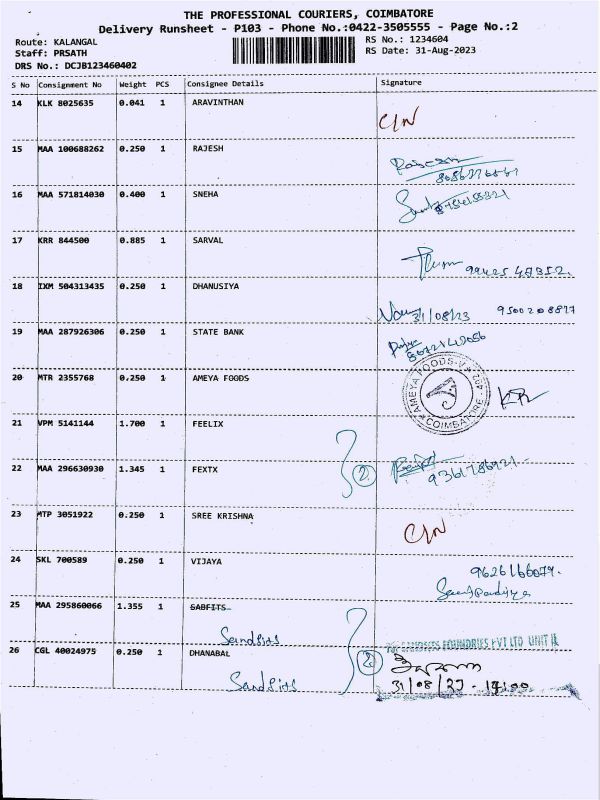 THE PROFESSIONAL COURIERS, COIMBATORE
Delivery Runsheet - P103 - Phone No.:0422-3505555 - Page No.:2
Route: KALANGAL RS No.: 1234604
Staff: PRSATH RS Date: 31-Aug-2023
DRS No.: DCJB123460402
S No Consignment No Weight PCS Consignee Details Signature
14 KLK 8025635 0.041 1 ARAVINTHAN
C/N
15 MAA 100688262 0.250 1 RAJESH
16 MAA 571814030 0.400 1 SNEHA
17 KRR 844500 0.885 1 SARVAL
18 IXM 504313435 0.250 1 DHANUSIYA
31/08/23 9500208877
19 MAA 287926306 0.250 1 STATE BANK
20 MTR 2355768 0.250 1 AMEYA FOODS
AMEYA FOODS COIMBATORE
21 VPM 5141144 1.700 1 FEELIX
22 MAA 296630930 1.345 1 FEXTX
2
9361786921
23 MTP 3051922 0.250 1 SREE KRISHNA
C/N
24 SKL 700589 0.250 1 VIJAYA
9626166079
25 MAA 295860066 1.355 1 SABFITS
Sandfits
SANDFITS FOUNDRIES PVT LTD UNIT II
26 CGL 40024975 0.250 1 DHANABAL
2
Sandfits